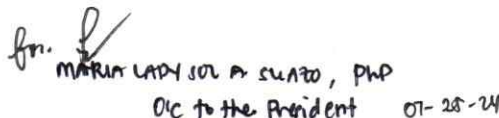 for.
MARIA LADY SOL A SUAZO, PhD
OIC to the President 07-25-24